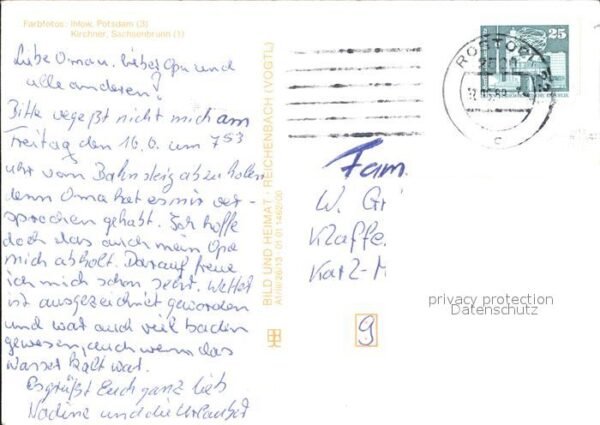 Farbfotos: Ihlow, Potsdam (3)
Kirchner, Sachsenbrunn (1)
Liebe Oma u. lieber Opa und
alle anderen!
Bitte vegeßt nicht mich am
Freitag den 16.6. um 7 53
uhr vom Bahnsteig abzuholen
denn Oma hat es mir ver-
sprochen gehabt. Ich hoffe
doch das auch mein Opa
mich abholt. Darauf freue
ich mich schon sehr. Wetter
ist ausgezeichnet geworden
und war auch viel baden
gewesen, auch wenn das
Wasser kalt war.
Es grüßt Euch ganz lieb
Nadine und die Urlauber
BILD UND HEIMAT · REICHENBACH (VOGTL)
ROSTOCK
25
Fam.
W. Gr
Klaffe
9
privacy protection
Datenschutz